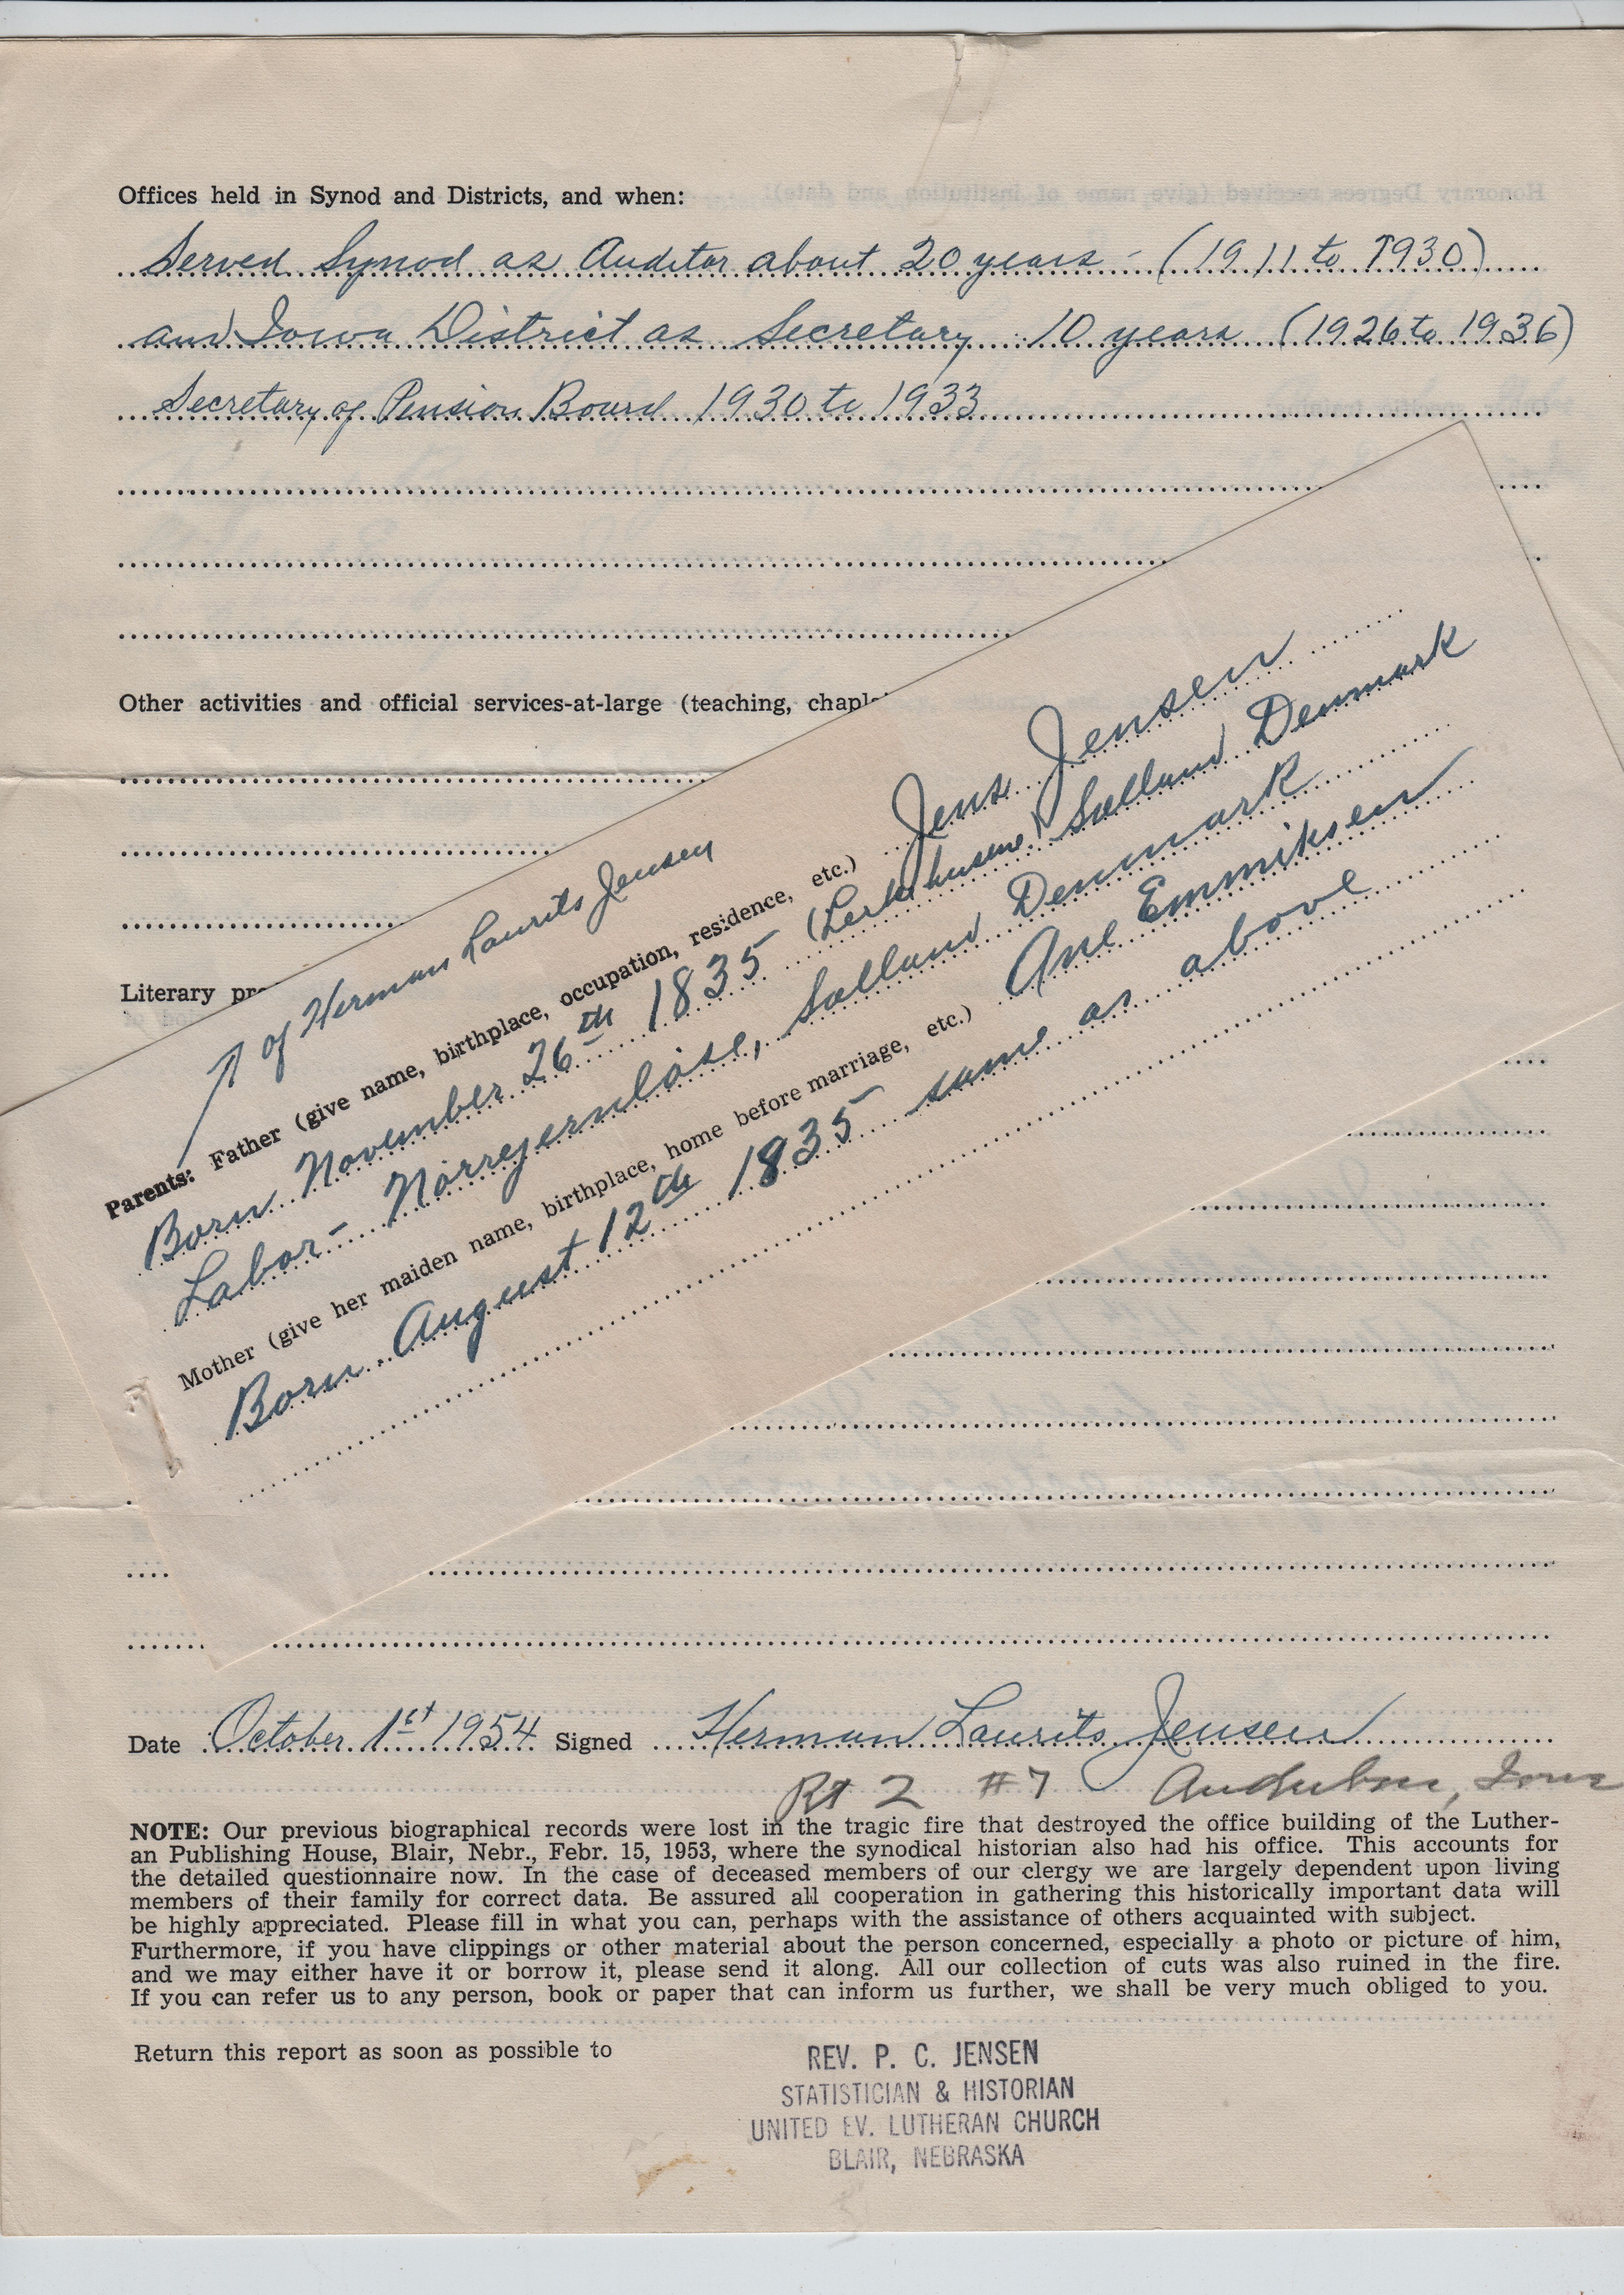 Offices held in Synod and Districts, and when:
Served Synod as Auditor about 20 years - (1911 to 1930)
and Iowa District as Secretary 10 years (1926 to 1936)
Secretary of Pension Board 1930 to 1933
Other activities and official services-at-large (teaching, chapl
Literary pr
↑ of Herman Laurits Jensen
Parents: Father (give name, birthplace, occupation, residence, etc.) Jens Jensen
Born November 26th 1835 Sælland Denmark
Labor - Nörrejernlöse, Sælland Denmark
Mother (give her maiden name, birthplace, home before marriage, etc.) Ane Emmiksen
Born August 12th 1835 same as above
Date October 1st 1954 Signed Herman Laurits Jensen
Rt 2 #7 Audubon, Iowa
NOTE: Our previous biographical records were lost in the tragic fire that destroyed the office building of the Luther-
an Publishing House, Blair, Nebr., Febr. 15, 1953, where the synodical historian also had his office. This accounts for
the detailed questionnaire now. In the case of deceased members of our clergy we are largely dependent upon living
members of their family for correct data. Be assured all cooperation in gathering this historically important data will
be highly appreciated. Please fill in what you can, perhaps with the assistance of others acquainted with subject.
Furthermore, if you have clippings or other material about the person concerned, especially a photo or picture of him,
and we may either have it or borrow it, please send it along. All our collection of cuts was also ruined in the fire.
If you can refer us to any person, book or paper that can inform us further, we shall be very much obliged to you.
Return this report as soon as possible to
REV. P. C. JENSEN
STATISTICIAN & HISTORIAN
UNITED EV. LUTHERAN CHURCH
BLAIR, NEBRASKA